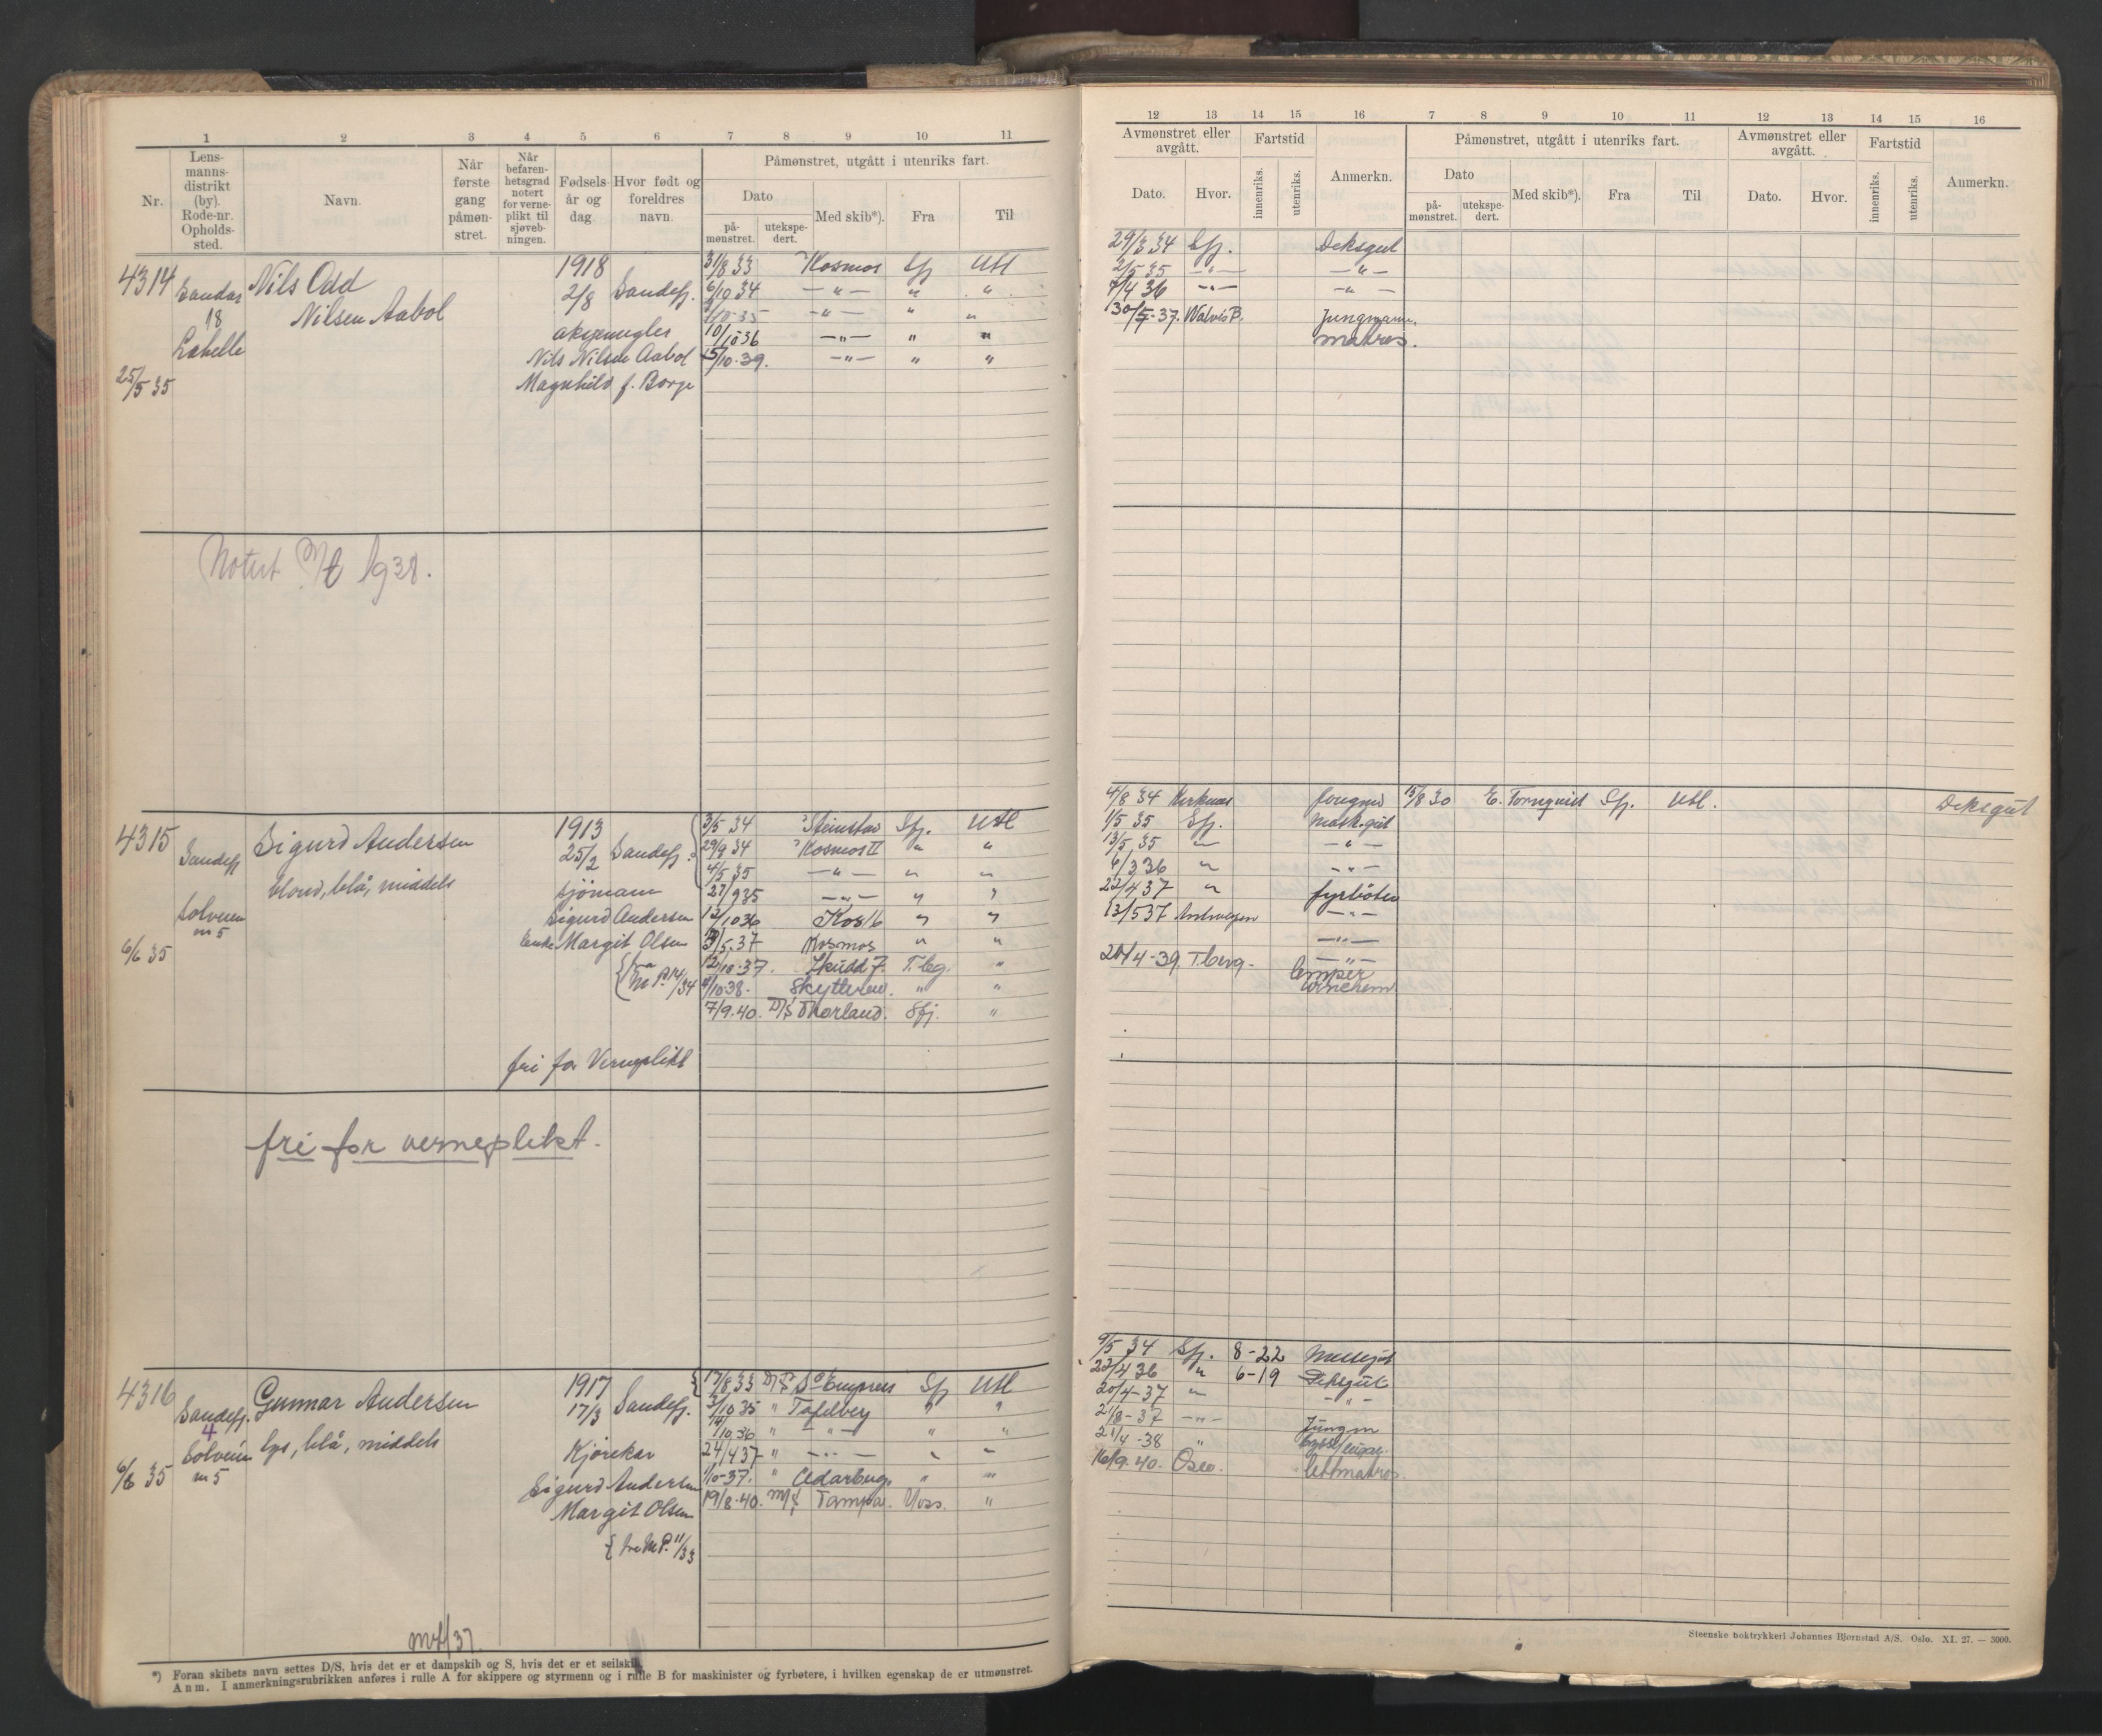 1 2 3 4 5 6 7 8 9 10 11
Nr.
Lens-
manns-
distrikt
(by).
Rode-nr.
Opholds-
sted.
Navn.
Når
første
gang
påmøn-
stret.
Når
befaren-
hetsgrad
notert
for verne-
plikt til
sjøveb-
ningen.
Fødsels-
år og
dag
Hvor født og
foreldres
navn.
Påmønstret, utgått i utenriks fart.
Dato
på-
mønstret.
utekspe-
dert.
Med skib*).
Fra
Til
4314 Sandar 18 25/5 35
Nils Odd
Nilsen Aabol
1918
2/8 Sandefj.
Nils Nilsen Aabol
Magnhild f. Borge
31/8 33 Kosmos Sfj Utl
6/10 34 —"— " "
2/10-35 —"— " "
10/10 36 —"— " "
15/10-39. —"— " "
Notert 1938.
4315 Sandefj Solveien nr 5 6/6 35
Sigurd Andersen
blond, blå, middels
1913
25/2 Sandefj.
sjömann
Sigurd Andersen
Enke Margit Olsen
fri for Verneplikt
3/5 34 Steinstad Sfj. Utl
29/9 34 Kosmos II " "
4/5 35 —"— " "
27/9 35 —"— " "
12/10 36 Kos 16 " "
Kosmos " "
12/10-37. Skudd 7. T.bg. "
4/10-38. Skytteren. " "
7/9-40. D/S Thorland. Sfj. "
fri for verneplikt.
4316 Sandefj. 4 Solveien nr 5 6/6 35
Gunnar Andersen
lys, blå, middels
1917
17/3 Sandefj.
Kjörekar
Sigurd Andersen
Margit Olsen
{ fra M.P. 11/33
17/8 33 D/S So Empress Sfj Utl
2/10 35 " Tafelberg " "
14/10 36 " —"— " "
24/4 37 " —"— " "
1/10-37. " Cedarbug. " "
19/8-40. M/S Tampa. Moss. "
*) Foran skibets navn settes D/S, hvis det er et dampskib og S, hvis det er et seilskib.
Anm. I anmerkningsrubrikken anføres i rulle A for skippere og styrmenn og i rulle B for maskinister og fyrbøtere, i hvilken egenskap de er utmønstret.
12 13 14 15 16 7 8 9 10 11 12 13 14 15 16
Avmønstret eller
avgått.
Fartstid
Dato.
Hvor.
innenriks.
utenriks.
Anmerkn.
Påmønstret, utgått i utenriks fart.
Dato
på-
mønstret.
utekspe-
dert.
Med skib*).
Fra
Til
Avmønstret eller
avgått.
Fartstid
Dato.
Hvor.
innenriks.
utenriks.
Anmerkn.
29/3 34 Sfj. Deksgut
2/5 35 —"— —"—
7/4 36 —"— —"—
30/5-37. Walvis B. Jungmann.
matros.
4/8 34 Kirknæs 15/8 30 E. Tornquist Sfj. Utl. Deksgut
1/5 35 Sfj. Mask.gut
13/5 35 " —"—
6/3 36 " —"—
22/4 37 " fyrböter
13/5 37 —"—
—"—
20/4-39. T.berg. —"—
lemper
9/5 34 Sfj. 8-22 Messegut
22/4 36 " 6-19 Deksgut
20/4-37 " —"—
21/8-37 —"— Jungm
21/4-38 "
16/9-40. Oslo. Lettmatros
Steenske boktrykkeri Johannes Bjørnstad A/S. Oslo. XI. 27. — 3000.